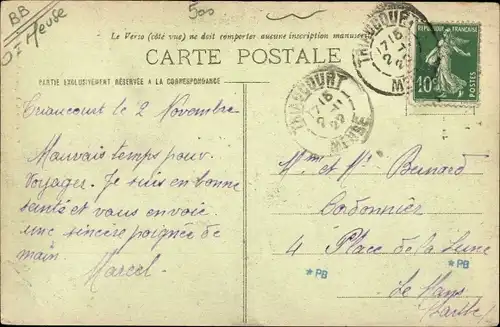 BB
D= Meuse
500
Le Verso (côté vue) ne doit comporter aucune inscription manuscrite
CARTE POSTALE
PARTIE EXCLUSIVEMENT RÉSERVÉE A LA CORRESPONDANCE
RÉPUBLIQUE FRANÇAISE
10c
POSTES
TRIAUCOURT
17 15
MEUSE
TRIAUCOURT
7 15
2 11
22
MEUSE
Triaucourt le 2 Novembre
Mauvais temps pour
voyager. Je suis en bonne
santé et vous envoie
une sincère poignée de
main.
Marcel
Mme et Mr Bernard
Cordonnier
4 Place de la Lune
*PB
*PB
Le Mans
Sarthe